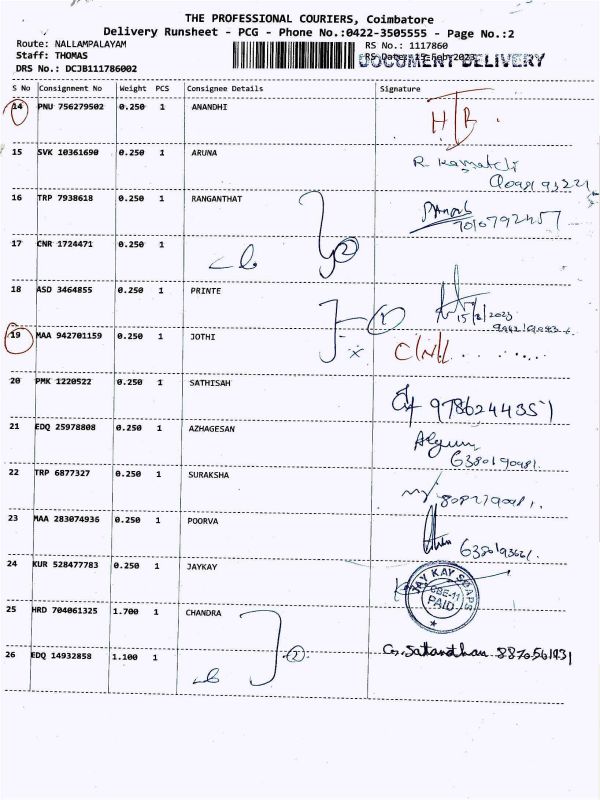 THE PROFESSIONAL COURIERS, Coimbatore
Delivery Runsheet - PCG - Phone No.:0422-3505555 - Page No.:2
Route: NALLAMPALAYAM
RS No.: 1117860
Staff: THOMAS
RS Date: 15-Feb-2023
DOCUMENT DELIVERY
DRS No.: DCJB111786002
S No Consignment No Weight PCS Consignee Details Signature
14 PNU 756279502 0.250 1 ANANDHI
15 SVK 10361690 0.250 1 ARUNA
16 TRP 7938618 0.250 1 RANGANTHAT
17 CNR 1724471 0.250 1
18 ASD 3464855 0.250 1 PRINTE
15/2/2023
19 MAA 942701159 0.250 1 JOTHI
20 PMK 1220522 0.250 1 SATHISAH
9786244351
21 EDQ 25978808 0.250 1 AZHAGESAN
22 TRP 6877327 0.250 1 SURAKSHA
23 MAA 283074936 0.250 1 POORVA
24 KUR 528477783 0.250 1 JAYKAY
JAY KAY SOAPS
CBE-11
PAID
25 HRD 704061325 1.700 1 CHANDRA
26 EDQ 14932858 1.100 1